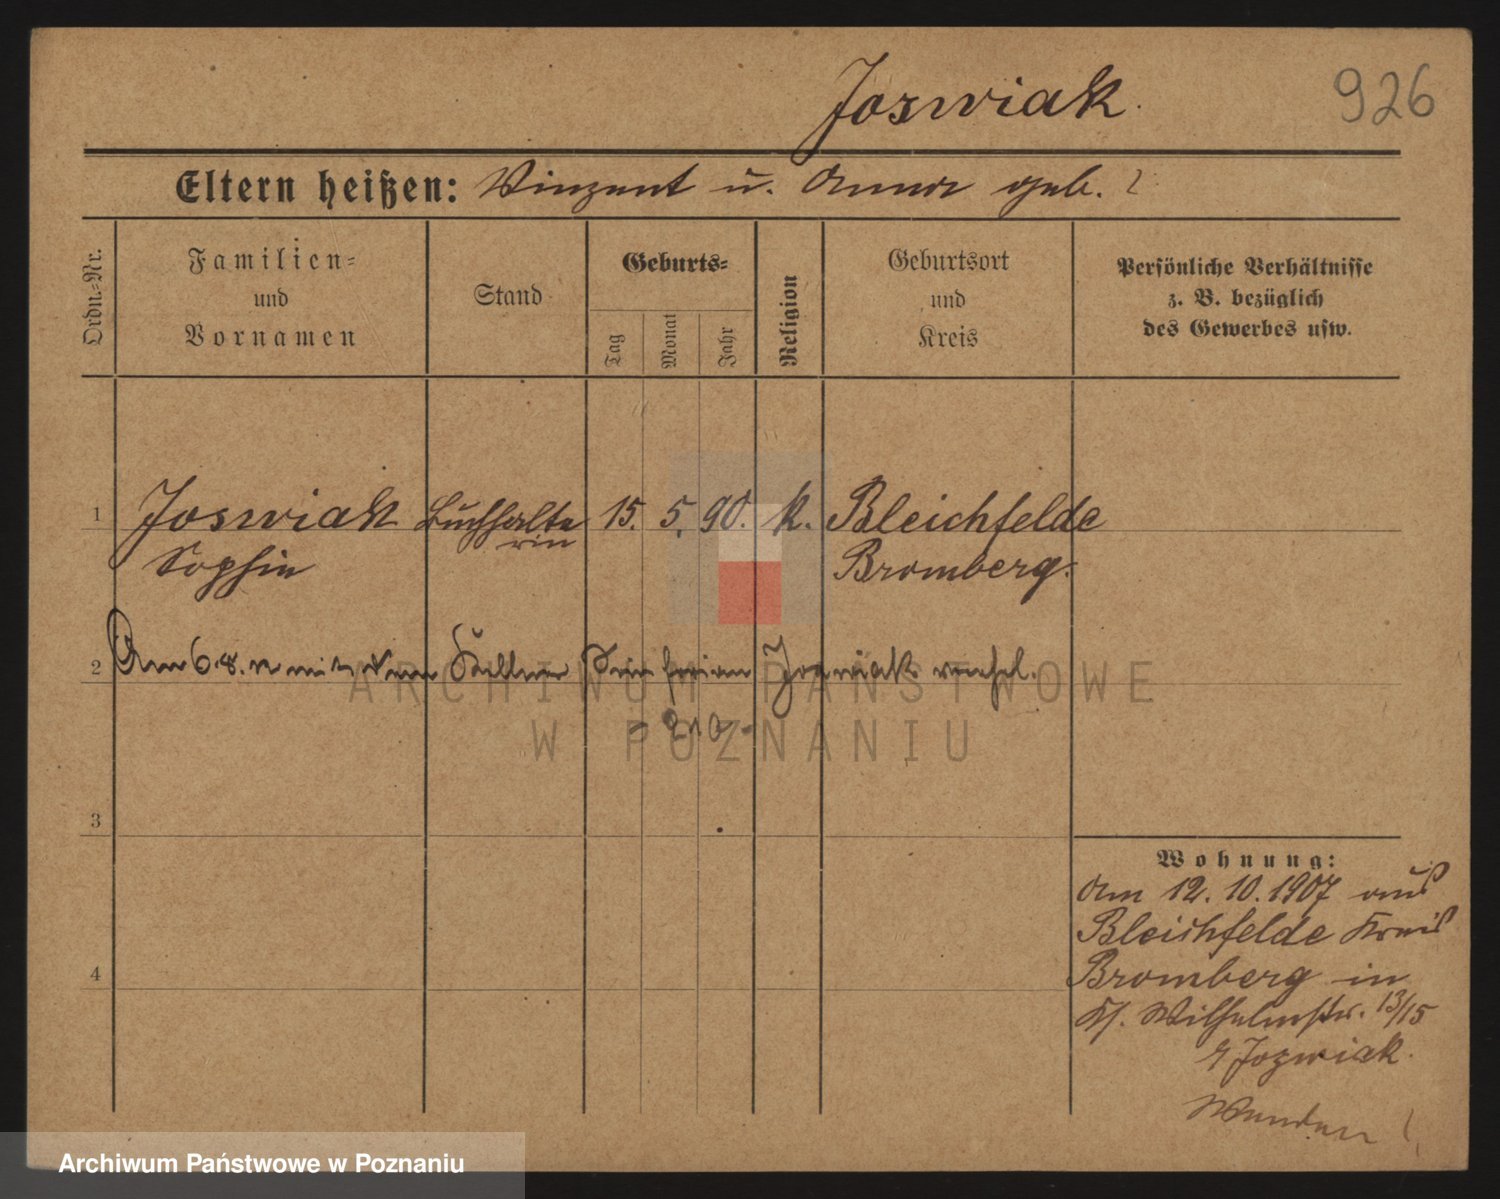 Joswiak.
926
Eltern heißen: Vinzent u. Anna geb. ?
Ordn.-Nr.
Familien-
und
Vornamen
Stand
Geburts-
Tag
Monat
Jahr
Religion
Geburtsort
und
Kreis
Persönliche Verhältnisse
z. B. bezüglich
des Gewerbes usw.
1 Joswiak Buchhalte 15. 5. 90. k. Bleichfelde
rin
Sophie Bromberg.
2 Am 6.8. mit dem Kellner Joswiak verehel.
3
Wohnung:
Am 12. 10. 1907 aus
Bleichfelde Kreis
4
Bromberg in
Wilhelmstr. 13/15
Jozwiak.
Wenden!
ARCHIWUM PAŃSTWOWE
W POZNANIU
Archiwum Państwowe w Poznaniu